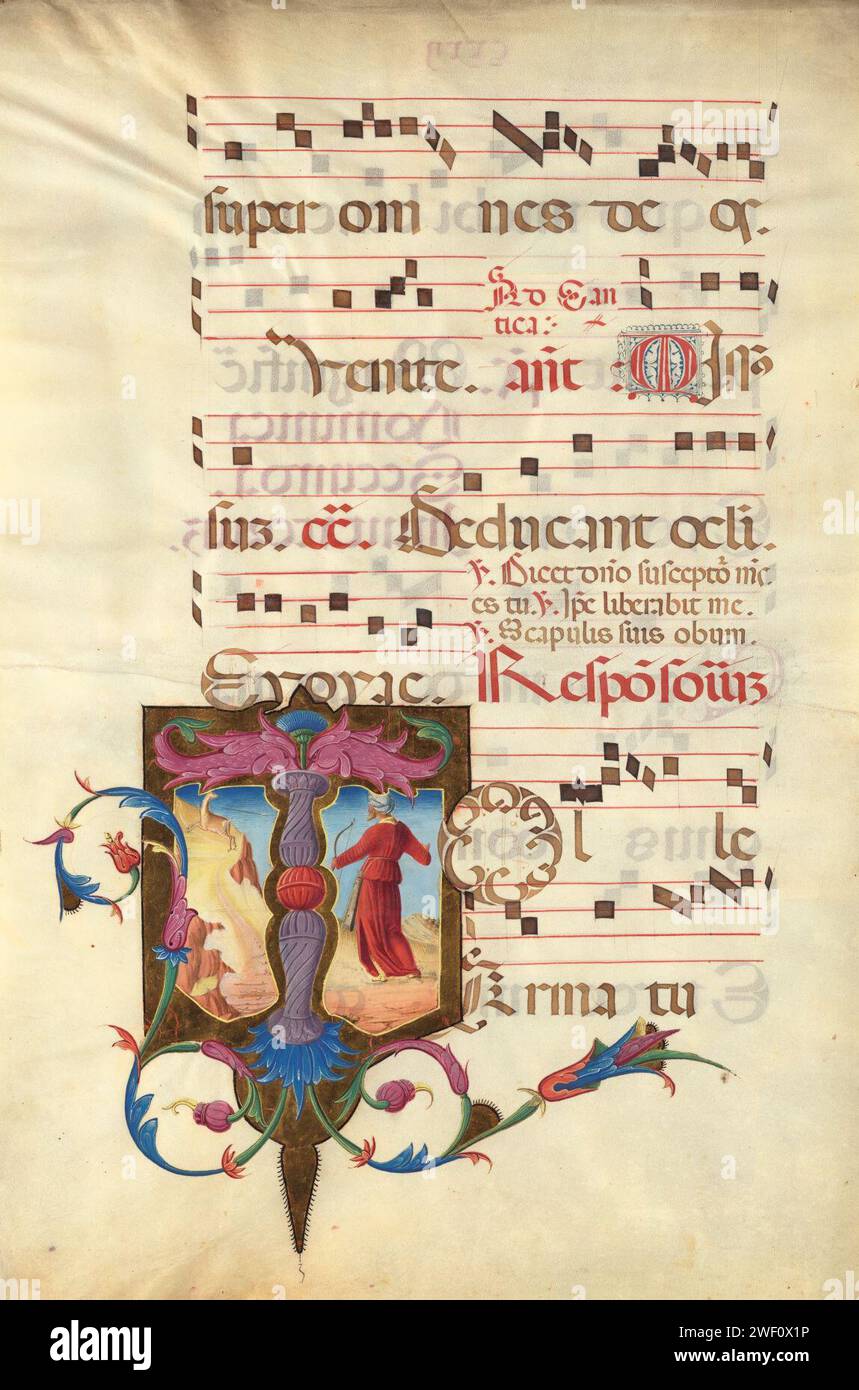 super om nes de os.
Ad Can
tica:
Venite. añt : M
Deducant ocli.
℣. Dicet dño susceptor me
es tu. ℣. Ipse liberabit me.
℣. Scapulis suis obum.
Evovae. Respõsoriuz
T ol le
Arma tu
alamy
Image ID: 2WF0X1P
www.alamy.com